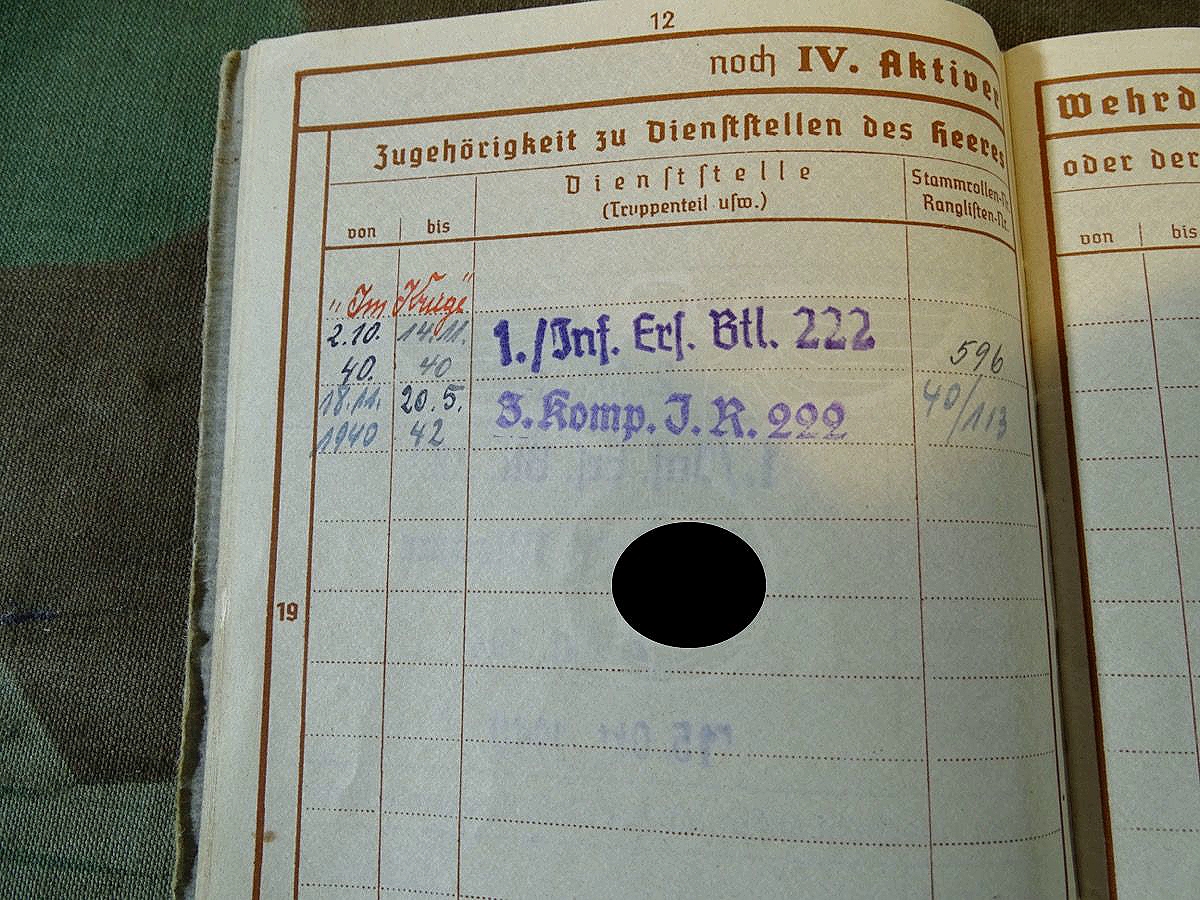 12
noch IV. Aktiver
Wehrd
Zugehörigkeit zu Dienststellen des Heeres
oder der
von bis Dienststelle Stammrollen-Nr.
(Truppenteil usw.) Ranglisten-Nr.
von bis
"Im Kriege"
2.10. 14.11. 1./Inf. Ers. Btl. 222 596
40. 40
18.11. 20.5. 3. Komp. I. R. 222 40/113
1940 42
19